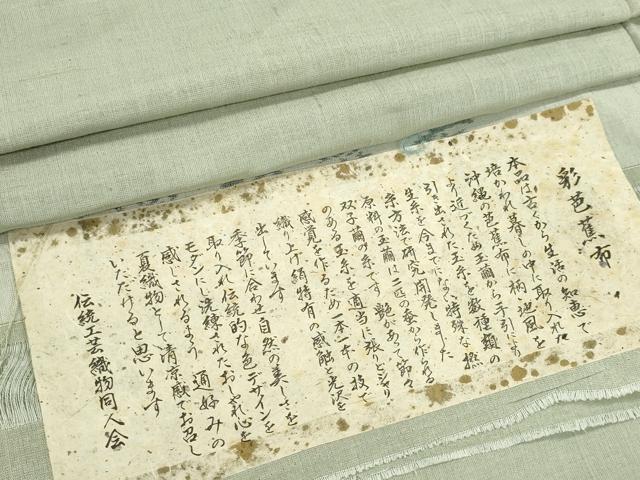 彩芭蕉布
本品は古くから生活の知恵で
培かわれ暮しの中に取り入れた
沖縄の芭蕉布に柄、地風を
より近づくため玉繭から手引にて
引き出された玉糸を数種類の
生糸を今までにない特殊な撚
糸方法で研究開発しました
原料の玉繭は二匹の蚕から作られる
双子繭の糸です。艶があって、節々
のある玉糸を適当に張りとシャリ
感覚を作るため一本一本の技で
織り上げ絹特有の感触と光沢を
出しています
季節に合わせ自然の美しさを
取り入れ伝統的な色デザインを
モダンにし洗練されたおしゃれ心を
感じさせるよう 通好みの
夏織物として清涼感でお召し
いただけると思います
伝統工芸織物同人会